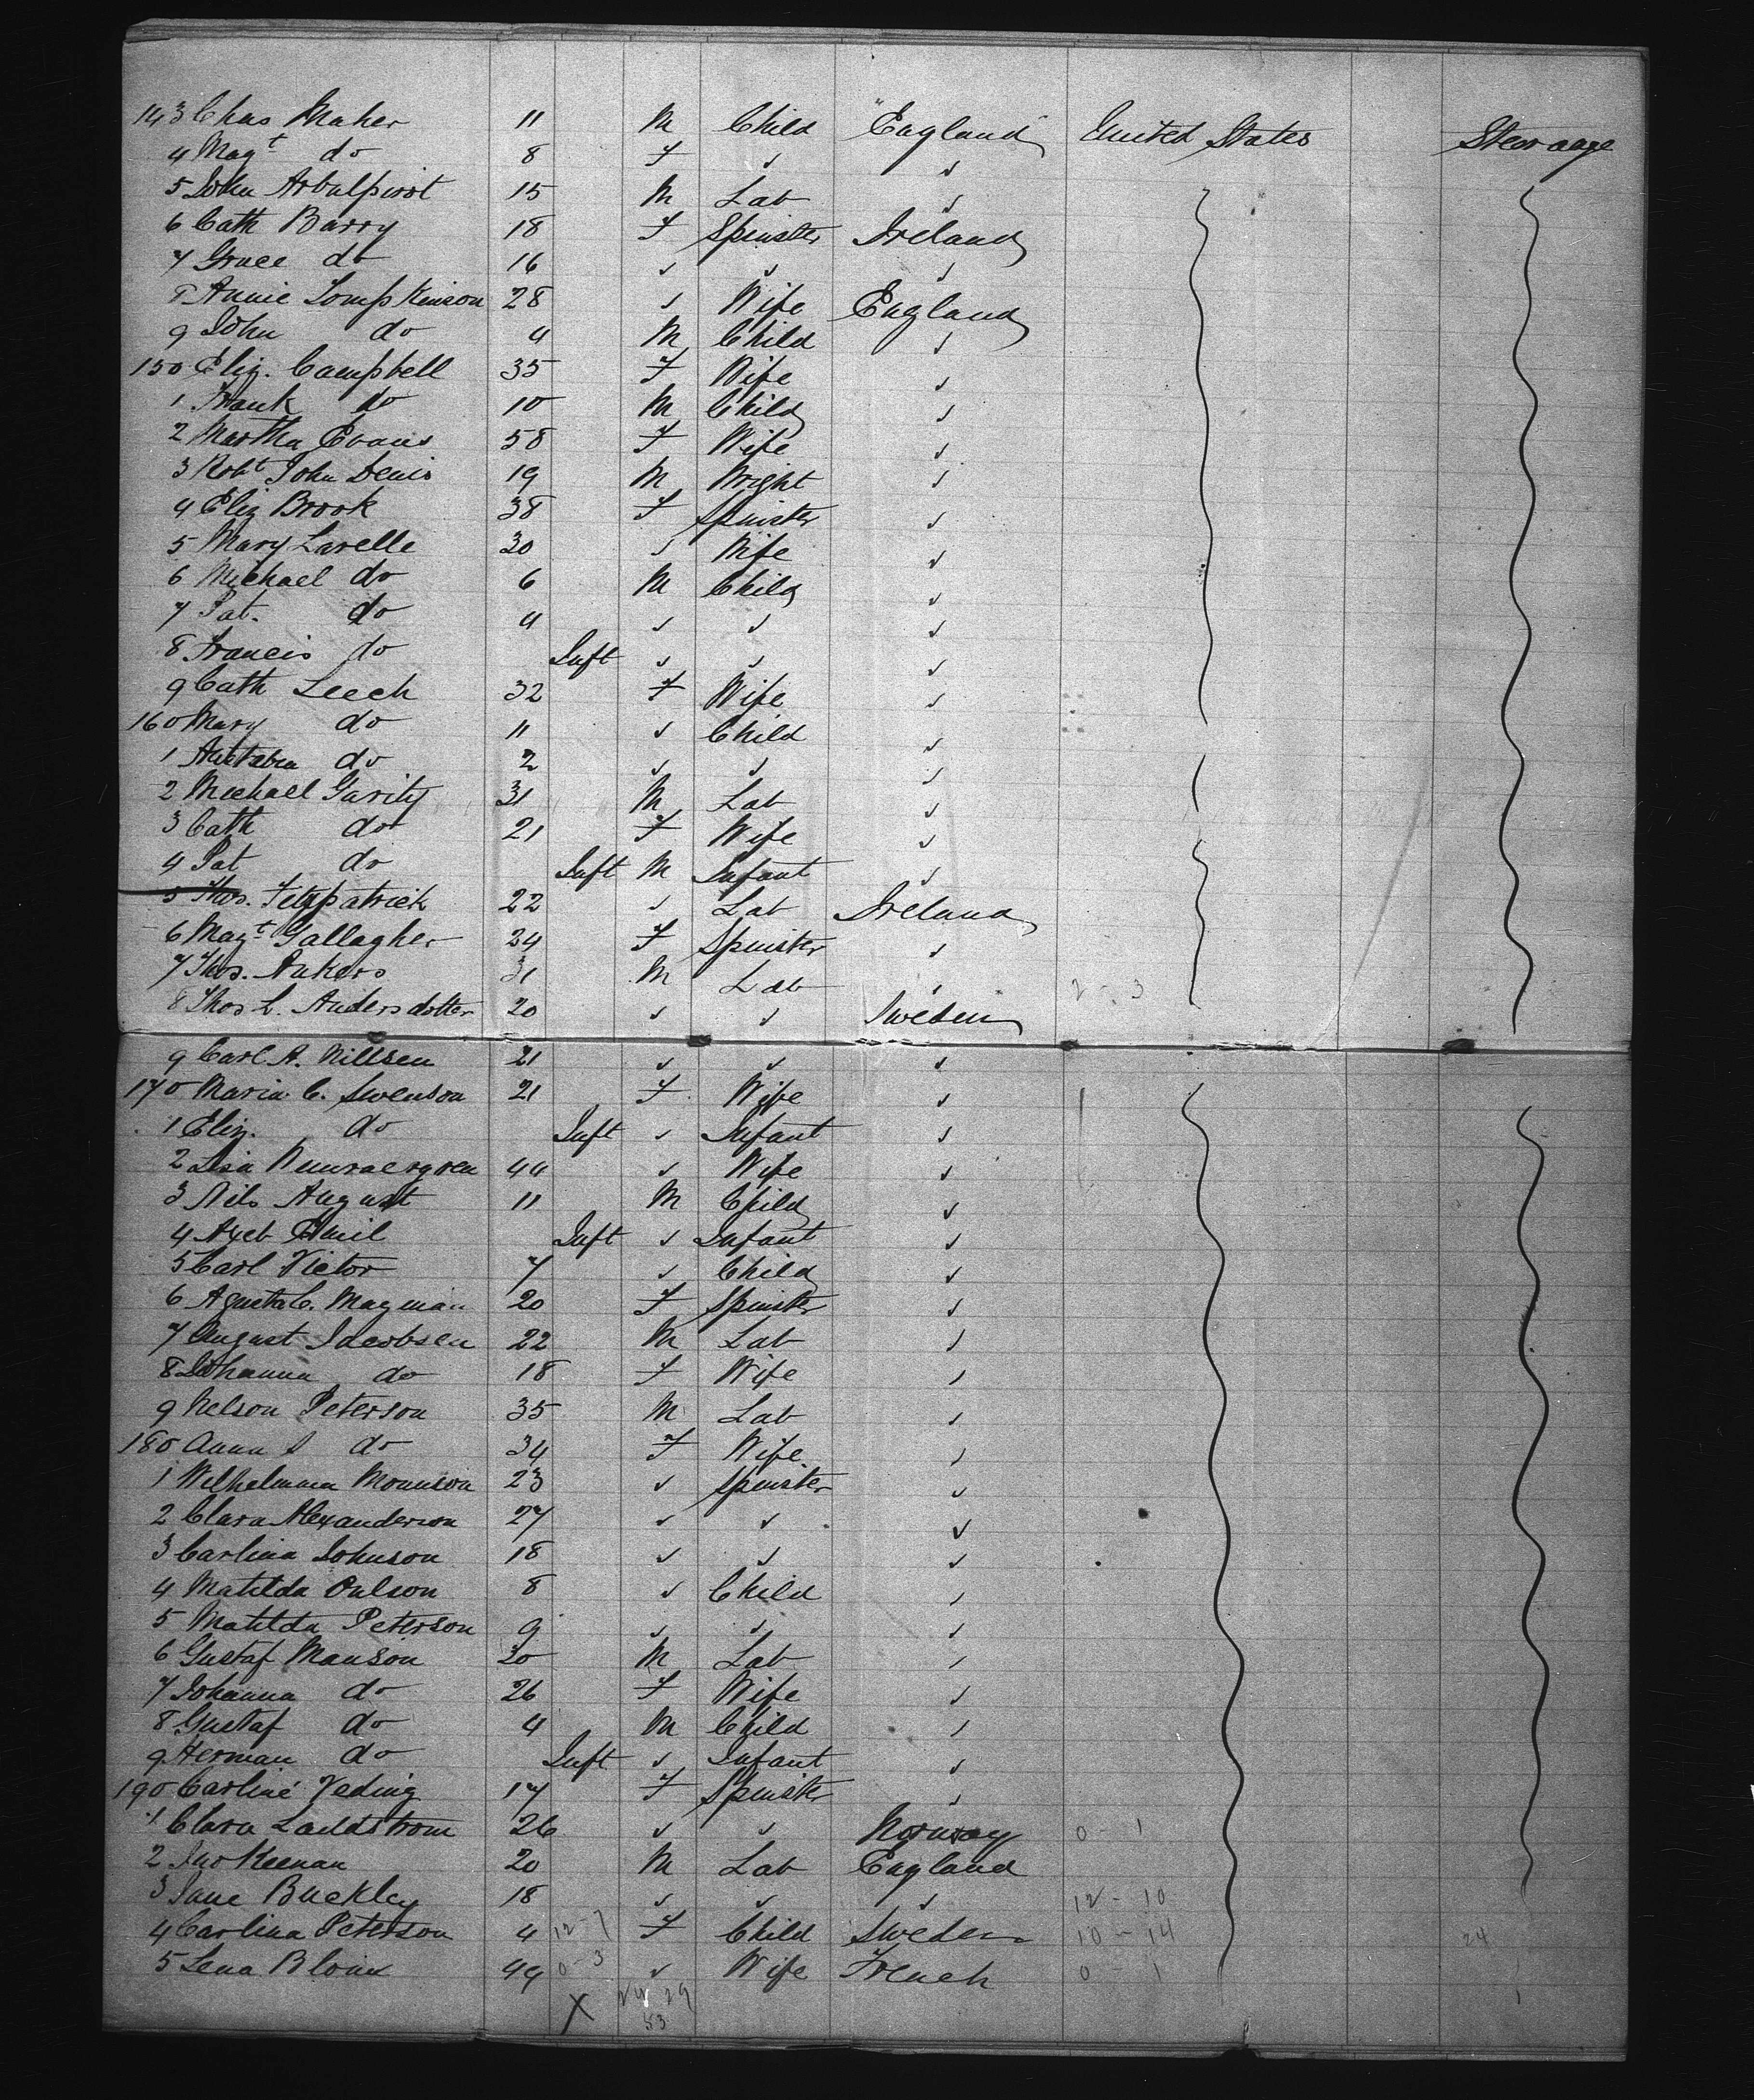 143 Chas Maher 11 M Child England United States Stearage
4 Magt do 8 F ✓ ✓
5 John 15 M Lab ✓
6 Cath Barry 18 F Spinster Ireland
7 Grace do 16 ✓ ✓ ✓
8 Annie Tompkinson 28 ✓ Wife England
9 John do 4 M Child ✓
150 Eliz. Campbell 35 F Wife ✓
1 Frank do 10 M Child ✓
2 Martha Evans 58 F Wife ✓
3 Robt John Denis 19 M Wright ✓
4 Eliz Brook 38 F Spinster ✓
5 Mary Lavelle 30 ✓ Wife ✓
6 Michael do 6 M Child ✓
7 Pat. do 4 ✓ ✓ ✓
8 Francis do Inft ✓ ✓ ✓
9 Cath Leech 32 F Wife ✓
160 Mary do 11 ✓ Child ✓
1 do 2 ✓ ✓ ✓
2 Michael Garity 31 M Lab ✓
3 Cath do 21 F Wife ✓
4 Pat do Inft M Infant ✓
5 Thos. Fitzpatrick 22 ✓ Lab Ireland
6 Magt Gallagher 24 F Spinster ✓
7 Thos. Ankers 31 M Lab ✓ 2 - 3
8 Thos L. Andersdotter 20 ✓ ✓ Sweden
9 Carl A. Nillsen 21 ✓ ✓ ✓
170 Maria C. Swenson 21 F Wife ✓
1 Eliz. do Inft ✓ Infant ✓
2 Lisa 44 ✓ Wife ✓
3 Nils August 11 M Child ✓
4 Axel Emil Inft ✓ Infant ✓
5 Carl Victor 7 ✓ Child ✓
6 Agusta C. Magman 20 F Spinster ✓
7 August Jacobsen 22 M Lab ✓
8 Johanna do 18 F Wife ✓
9 Nelson Peterson 35 M Lab ✓
180 Anna S do 34 F Wife ✓
1 Wilhelmina Monnson 23 ✓ Spinster ✓
2 Clara Alexanderson 27 ✓ ✓ ✓
3 Carlina Johnson 18 ✓ ✓ ✓
4 Matilda Oulson 8 ✓ Child ✓
5 Matilda Peterson 9 ✓ ✓ ✓
6 Gustaf Manson 30 M Lab ✓
7 Johanna do 26 F Wife ✓
8 Gustaf do 4 M Child ✓
9 Herman do Inft ✓ Infant ✓
190 Carline Veding 17 F Spinster ✓
1 Clara Landstrom 26 ✓ ✓ Norway 0 - 1
2 Jno Keenan 20 M Lab England
3 Jane Buckley 18 ✓ ✓ ✓ 12 - 10
4 Carlina Peterson 4 12 - 7 F Child Sweden 10 - 14 24
5 Lena Blom 49 0 - 3 ✓ Wife French 0 - 1
X 24 29
53